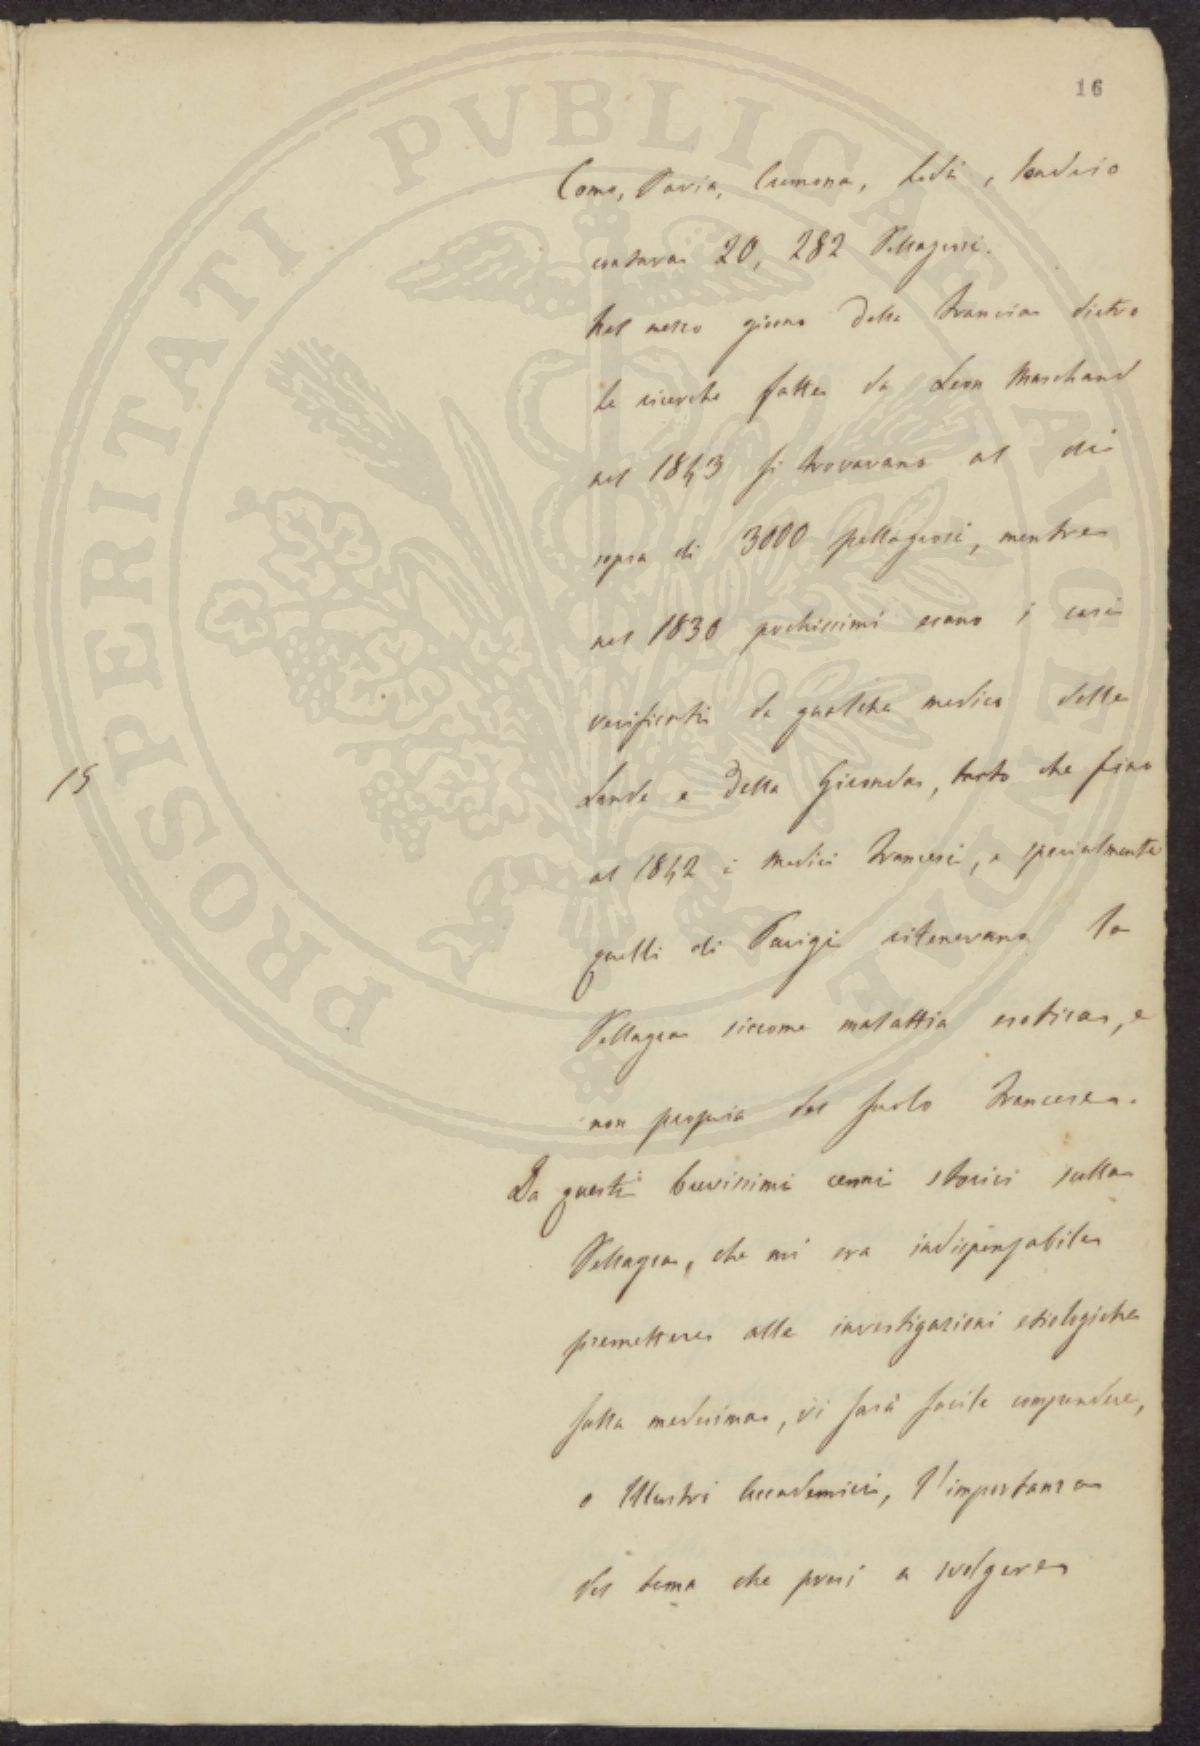 16
Como, Pavia, Cremona, Lodi, Sondrio
contava 20,282 Pellagrosi.
Nel mezzo giorno della Francia dietro
le ricerche fatte da Leon Marchand
nel 1843 si trovavano al di
sopra di 3000 pellagrosi, mentre
nel 1830 pochissimi erano i casi
verificati da qualche medico delle
15
Lande e della Gironda, tanto che fino
al 1842 i Medici Francesi, e specialmente
quelli di Parigi ritenevano la
Pellagra siccome malattia esotica, e
non propria del suolo Francese.
Da questi brevissimi cenni storici sulla
Pellagra, che mi era indispensabile
premettere alle investigazioni etiologiche
sulla medesima, vi sarà facile comprendere,
o Illustri Accademici, l'importanza
del tema che presi a svolgere
PROSPERITATI PVBLICAE AVGENDAE